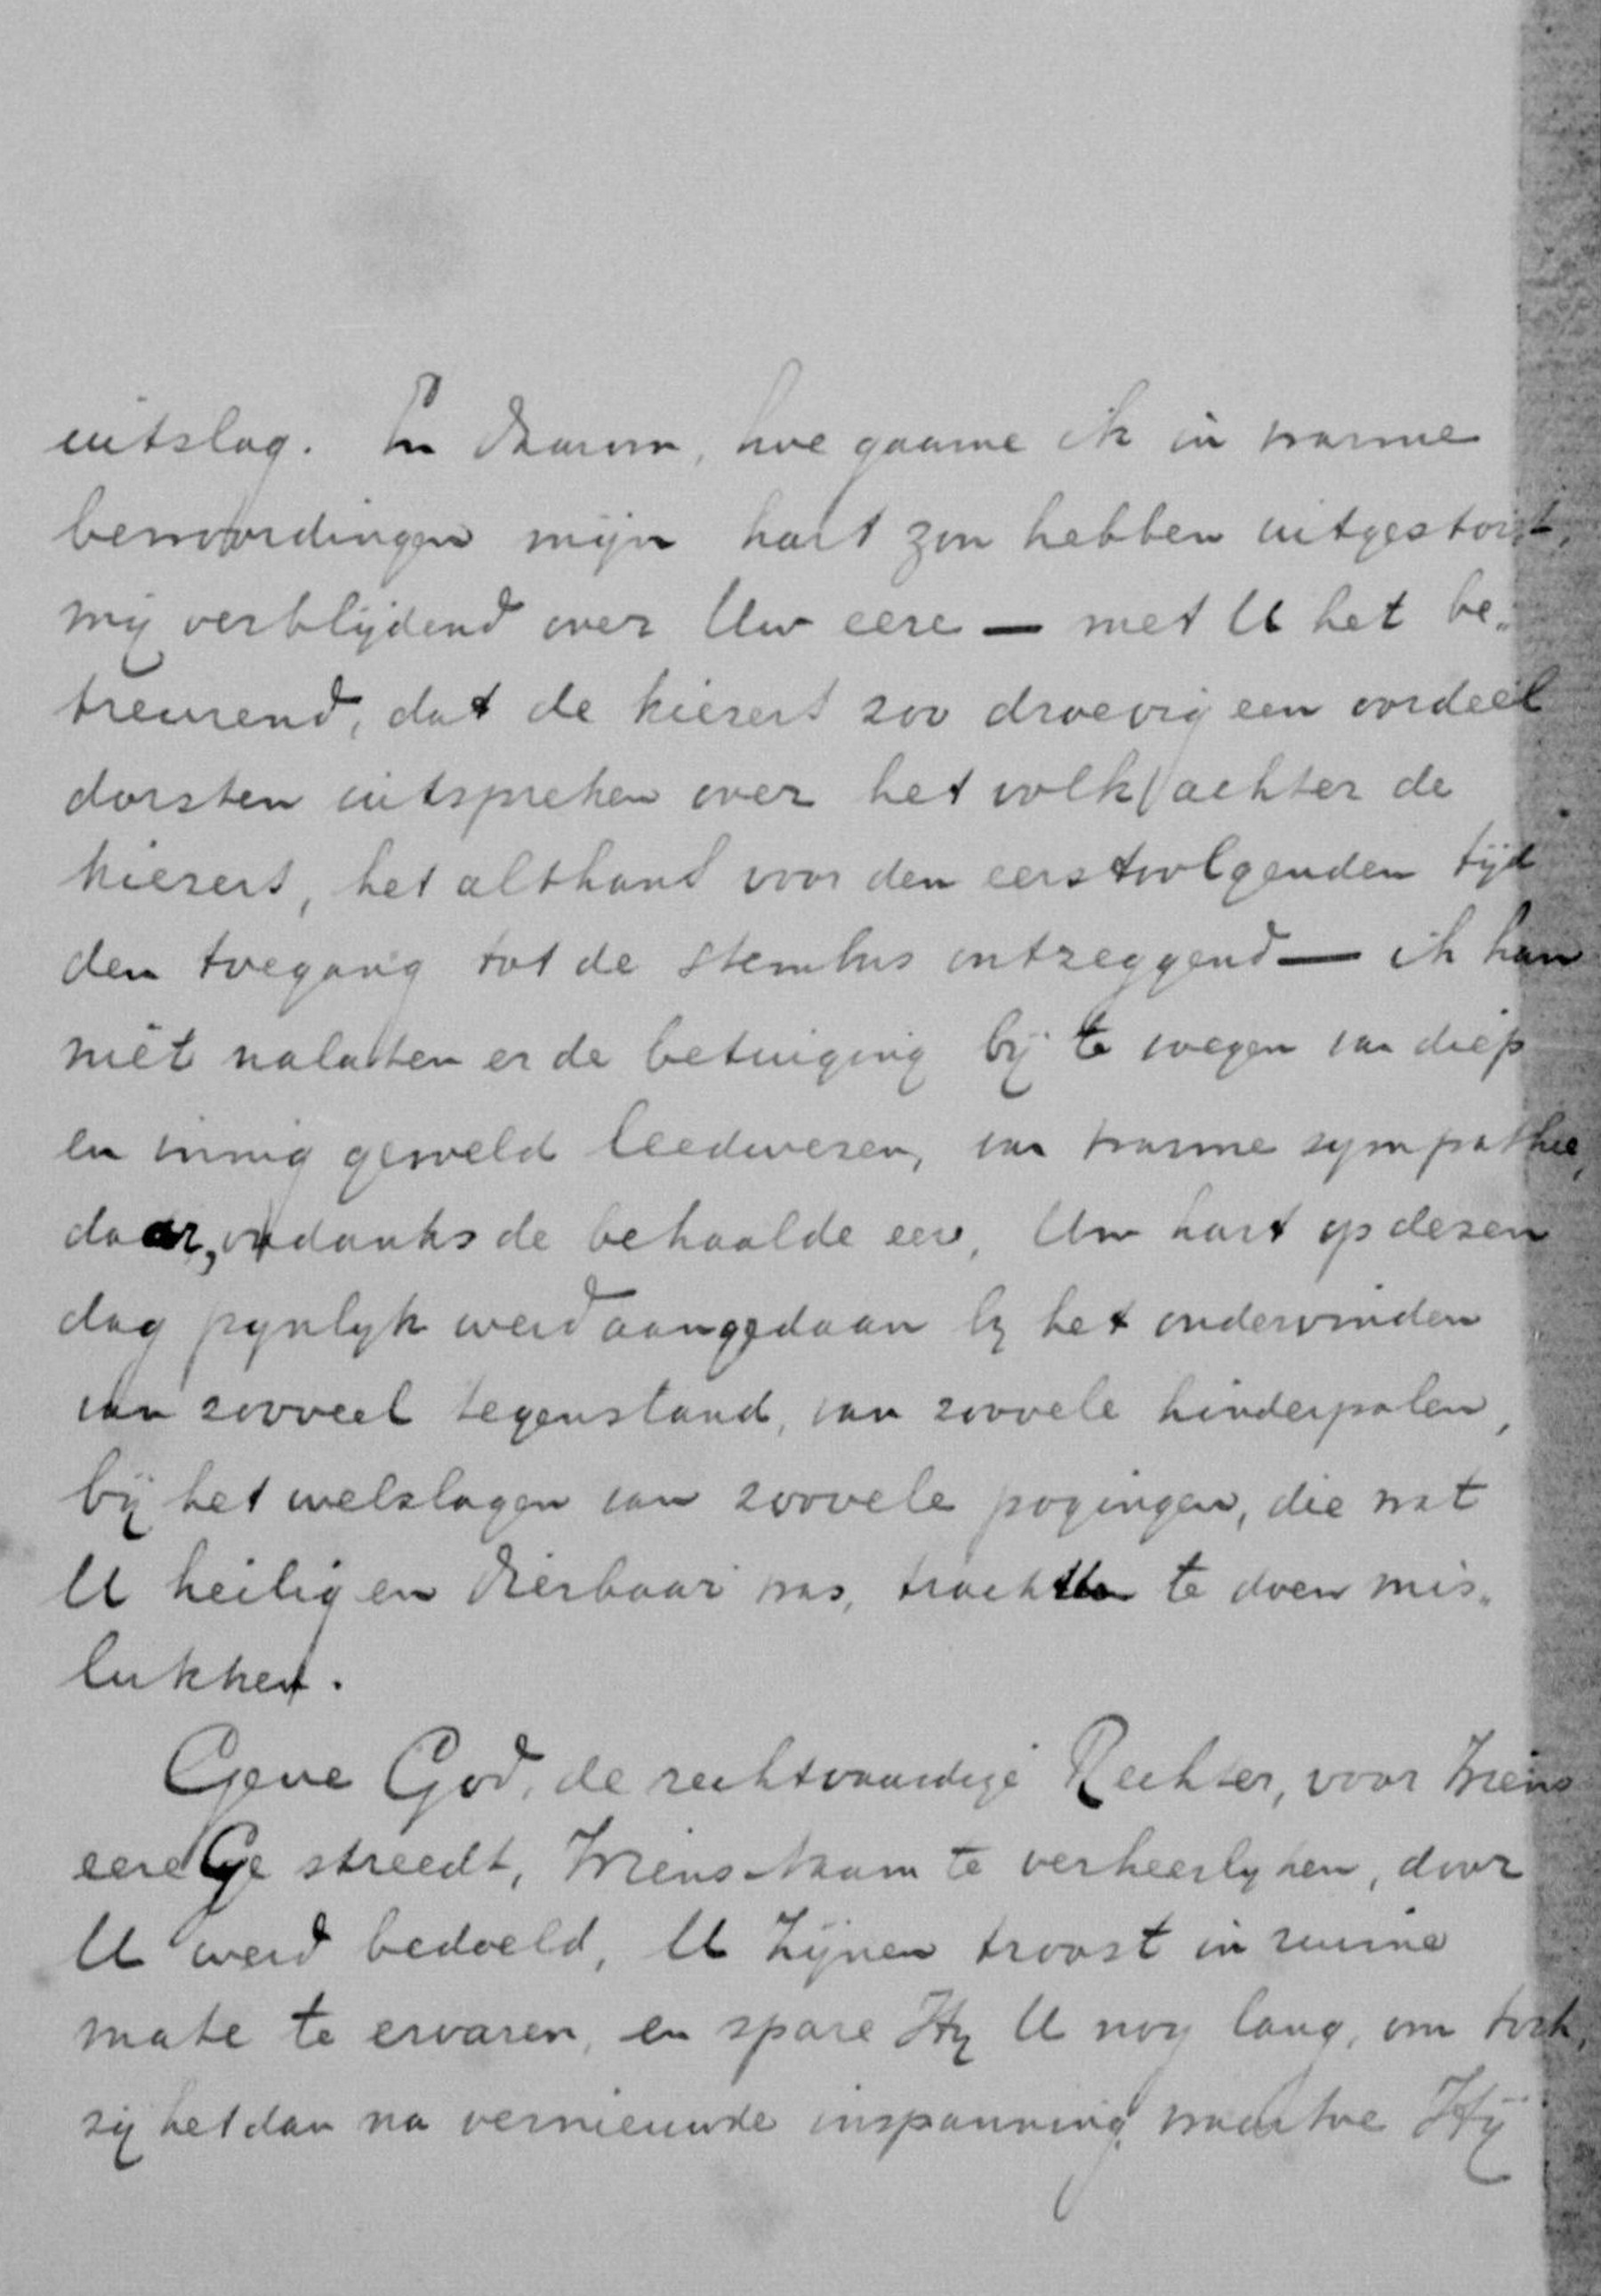 uitslag. En daarom, hoe gaarne ik in warme
bewoordingen mijn hart zou hebben uitgestort,
mij verblijdend over Uw eere — met U het be„
treurend, dat de kiezers zoo droevig een oordeel
dorsten uitspreken over het volk achter de
kiezers, het althans voor den eerstvolgenden tijd
den toegang tot de stembus ontzeggend — ik kan
niet nalaten er de betuiging bij te voegen van diep
en innig gevoeld leedwezen, van warme sympathie,
daar, ondanks de behaalde eer, Uw hart op dezen
dag pynlyk werd aangedaan by het ondervinden
van zooveel tegenstand, van zoovele hinderpalen,
bij het welslagen van zoovele pogingen, die wat
U heilig en dierbaar was, trachtten te doen mis„
lukken.
Geve God, de rechtvaardige Rechter, voor Wiens
eere Ge streedt, Wiens Naam te verheerlyken, door
U werd bedoeld, U Zijnen troost in ruime
mate te ervaren, en spare Hy U nog lang, om toch,
zij het dan na vernieuwde inspanning, waartoe Hij